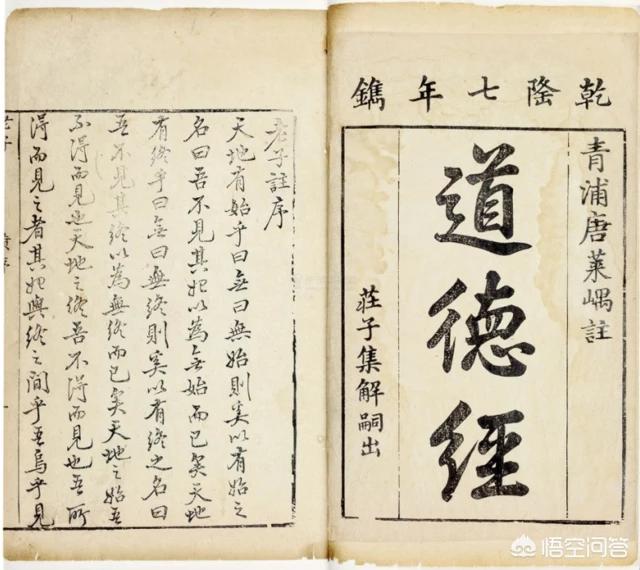 乾隆七年鐫
青浦唐萊嵎註
道德經
莊子集解嗣出
老子註序
天地有始乎曰無曰無始則奚以有始之
名曰吾不見其始以為無始而已矣天地
有終乎曰無曰無終則奚以有終之名曰
吾不見其終以為無終而已矣天地之始吾
不得而見也天地之終吾不得而見也吾所
得而見之者其始與終之間乎吾烏乎見
老子
悟空问答